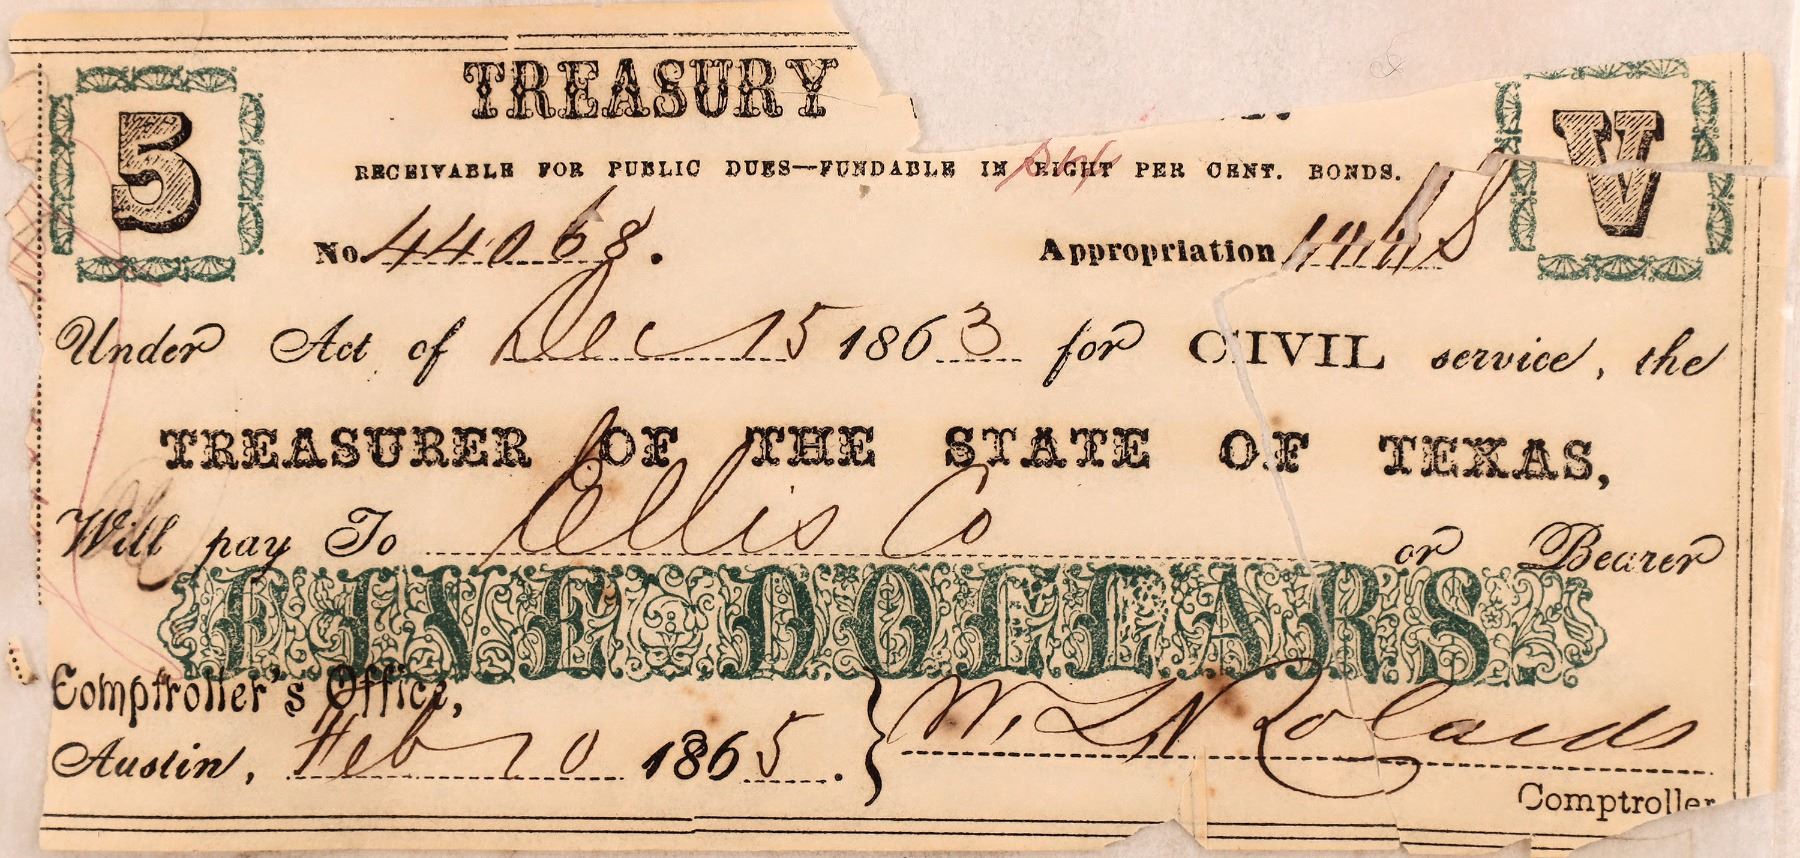 5 TREASURY V
RECEIVABLE FOR PUBLIC DUES—FUNDABLE IN EIGHT PER CENT. BONDS.
No. 44068. Appropriation
Under Act of Dec 15 1863 for CIVIL service, the
TREASURER OF THE STATE OF TEXAS,
Will pay To Ellis Co or Bearer
FIVE DOLLARS
Comptroller's Office,
Austin, Feb 20 1865. W. L. Rolands
Comptroller